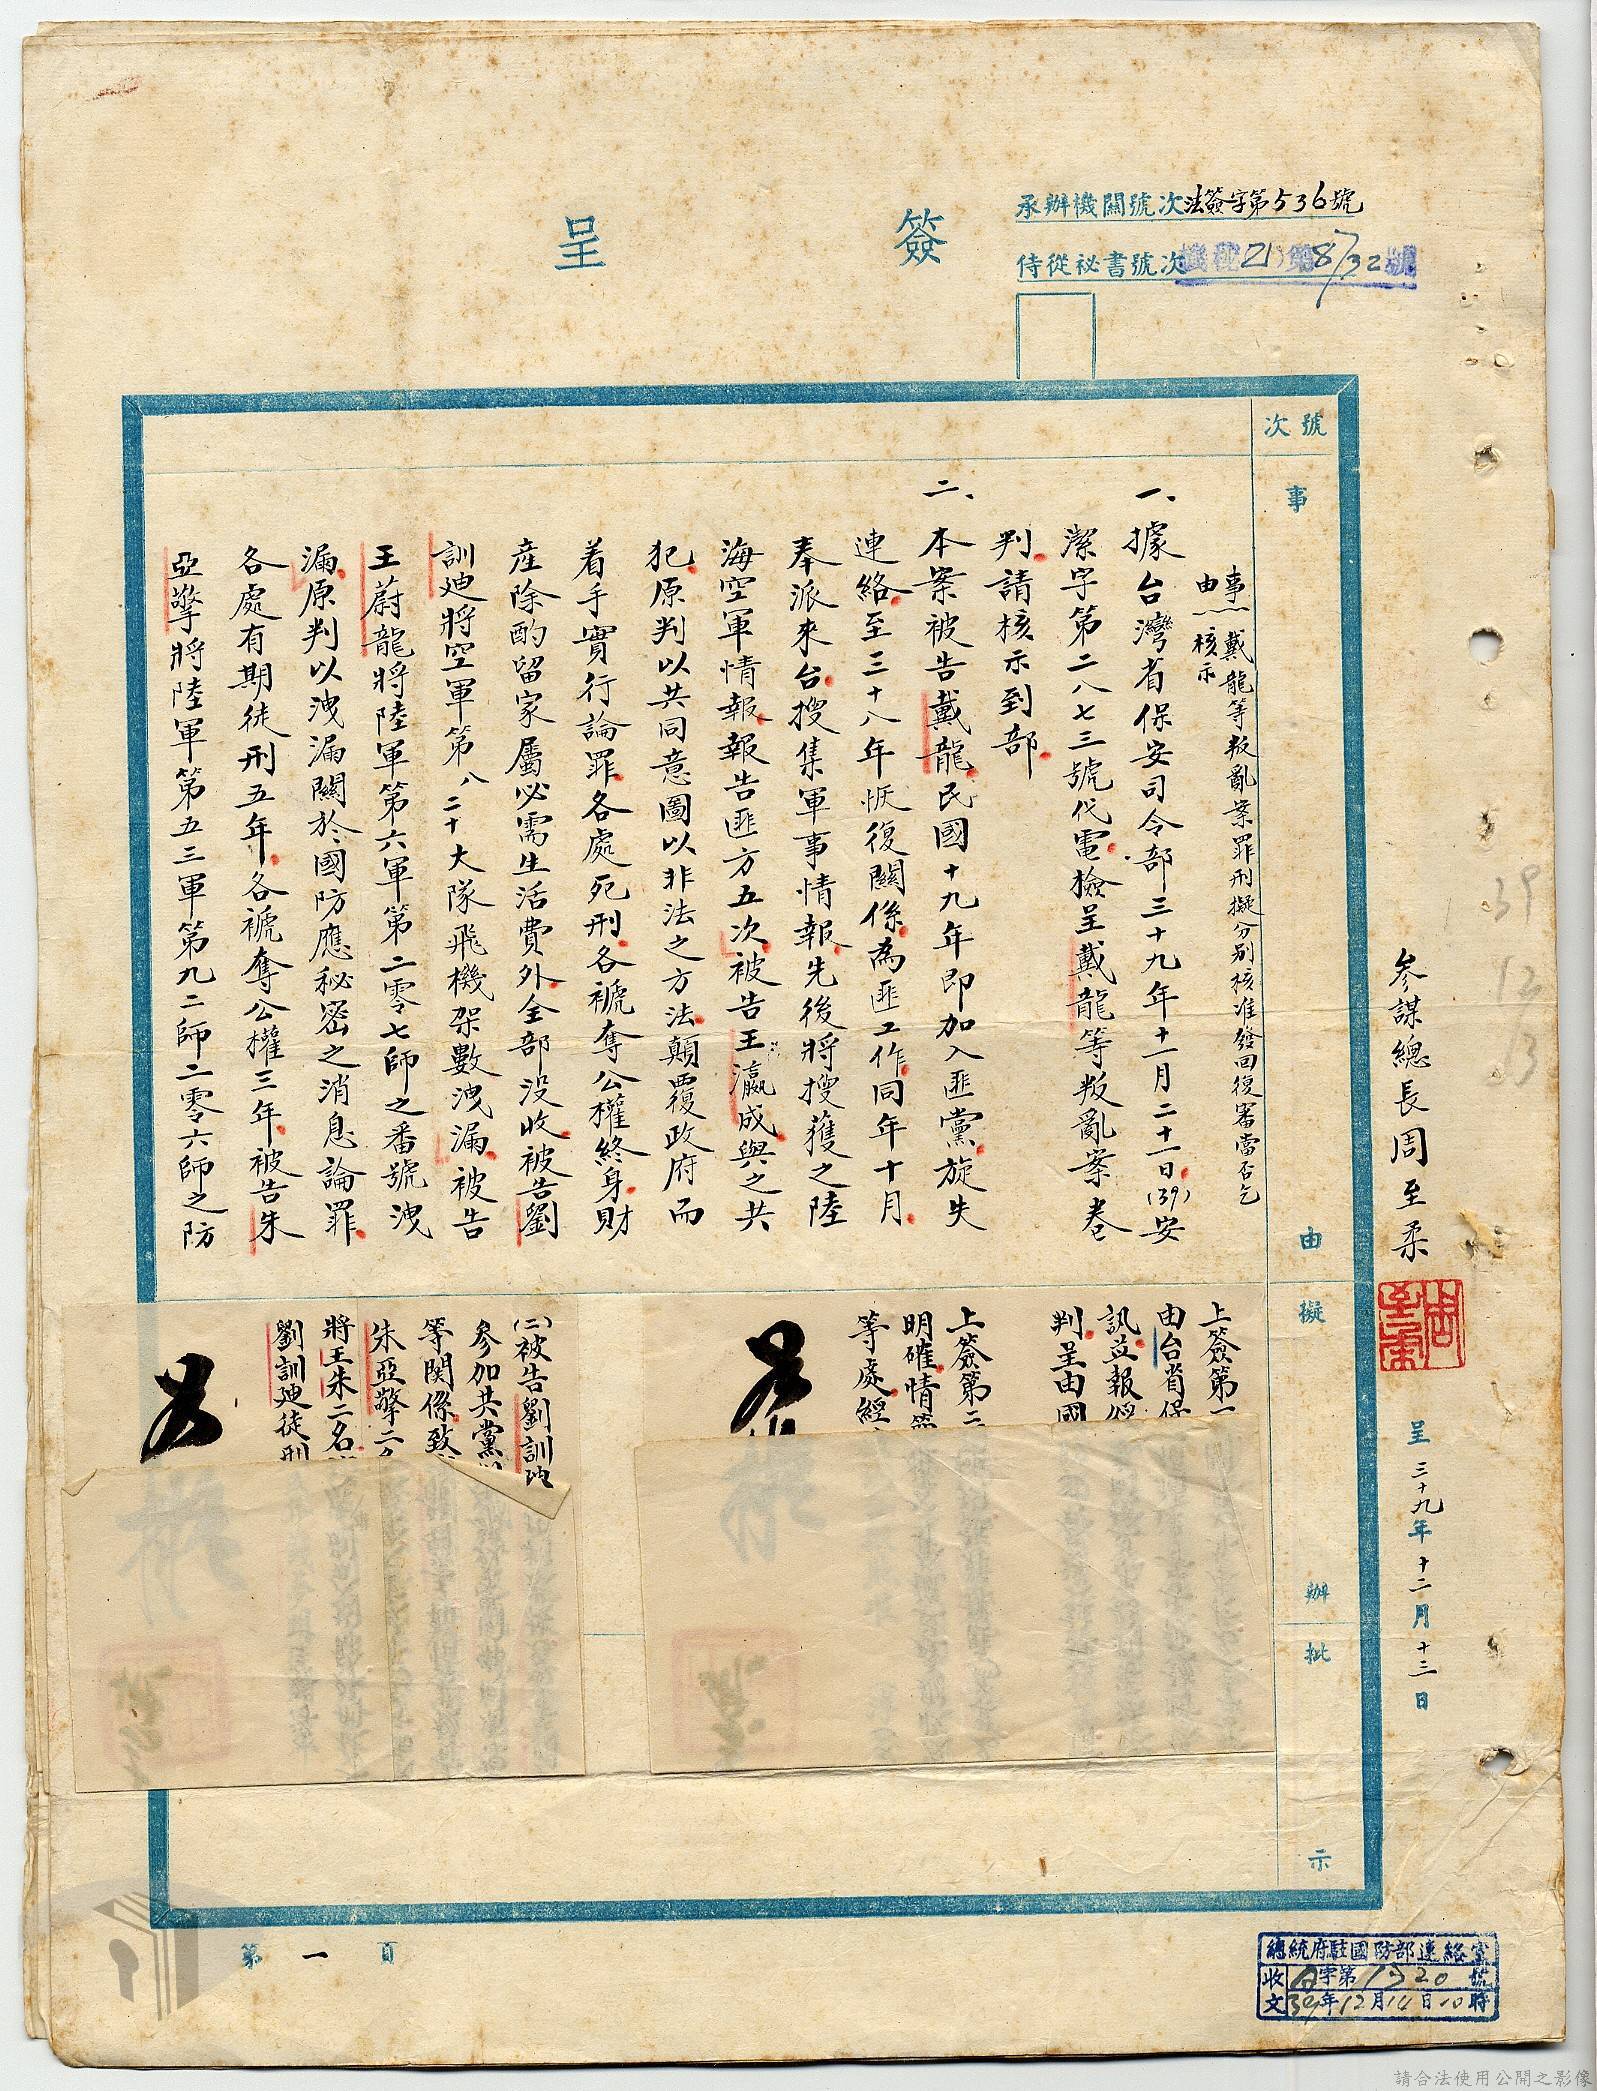 簽呈
承辦機關號次法簽字第536號
侍從祕書號次機秘(乙)第8732號
參謀總長周至柔
周至柔
呈三十九年十二月十三日
39
12
13
號次
事由
擬辦
批示
事由：戴龍等叛亂案罪刑擬分別核准發回復審當否乞
核示
一、據台灣省保安司令部三十九年十一月二十一日(39)安
潔字第二八七三號代電檢呈戴龍等叛亂案卷
判請核示到部
二、本案被告戴龍民國十九年即加入匪黨旋失
連絡至三十八年恢復關係為匪工作同年十月
奉派來台搜集軍事情報先後將搜獲之陸
海空軍情報報告匪方五次被告王瀛成與之共
犯原判以共同意圖以非法之方法顛覆政府而
着手實行論罪各處死刑各褫奪公權終身財
產除酌留家屬必需生活費外全部沒收被告劉
訓迪將空軍第八二十大隊飛機架數洩漏被告
王蔚龍將陸軍第六軍第二零七師之番號洩
漏原判以洩漏關於國防應秘密之消息論罪
各處有期徒刑五年各褫奪公權三年被告朱
亞擎將陸軍第五三軍第九二師二零六師之防
上簽第一
由台省保
訊並報
判呈由國
上簽第二
明確情
等處經
(二)被告劉訓
參加共黨
等関係致
朱亞擎二
將王朱二名
劉訓迪徒刑
第一頁
總統府駐國防部連絡室
收文 字第1520號
39年12月14日10時
請合法使用公開之影像